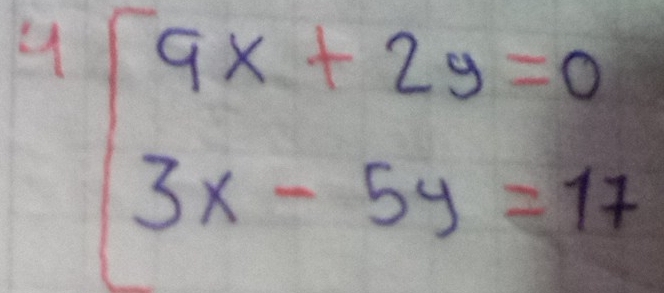 4 [ 9x + 2y = 0
3x - 5y = 17